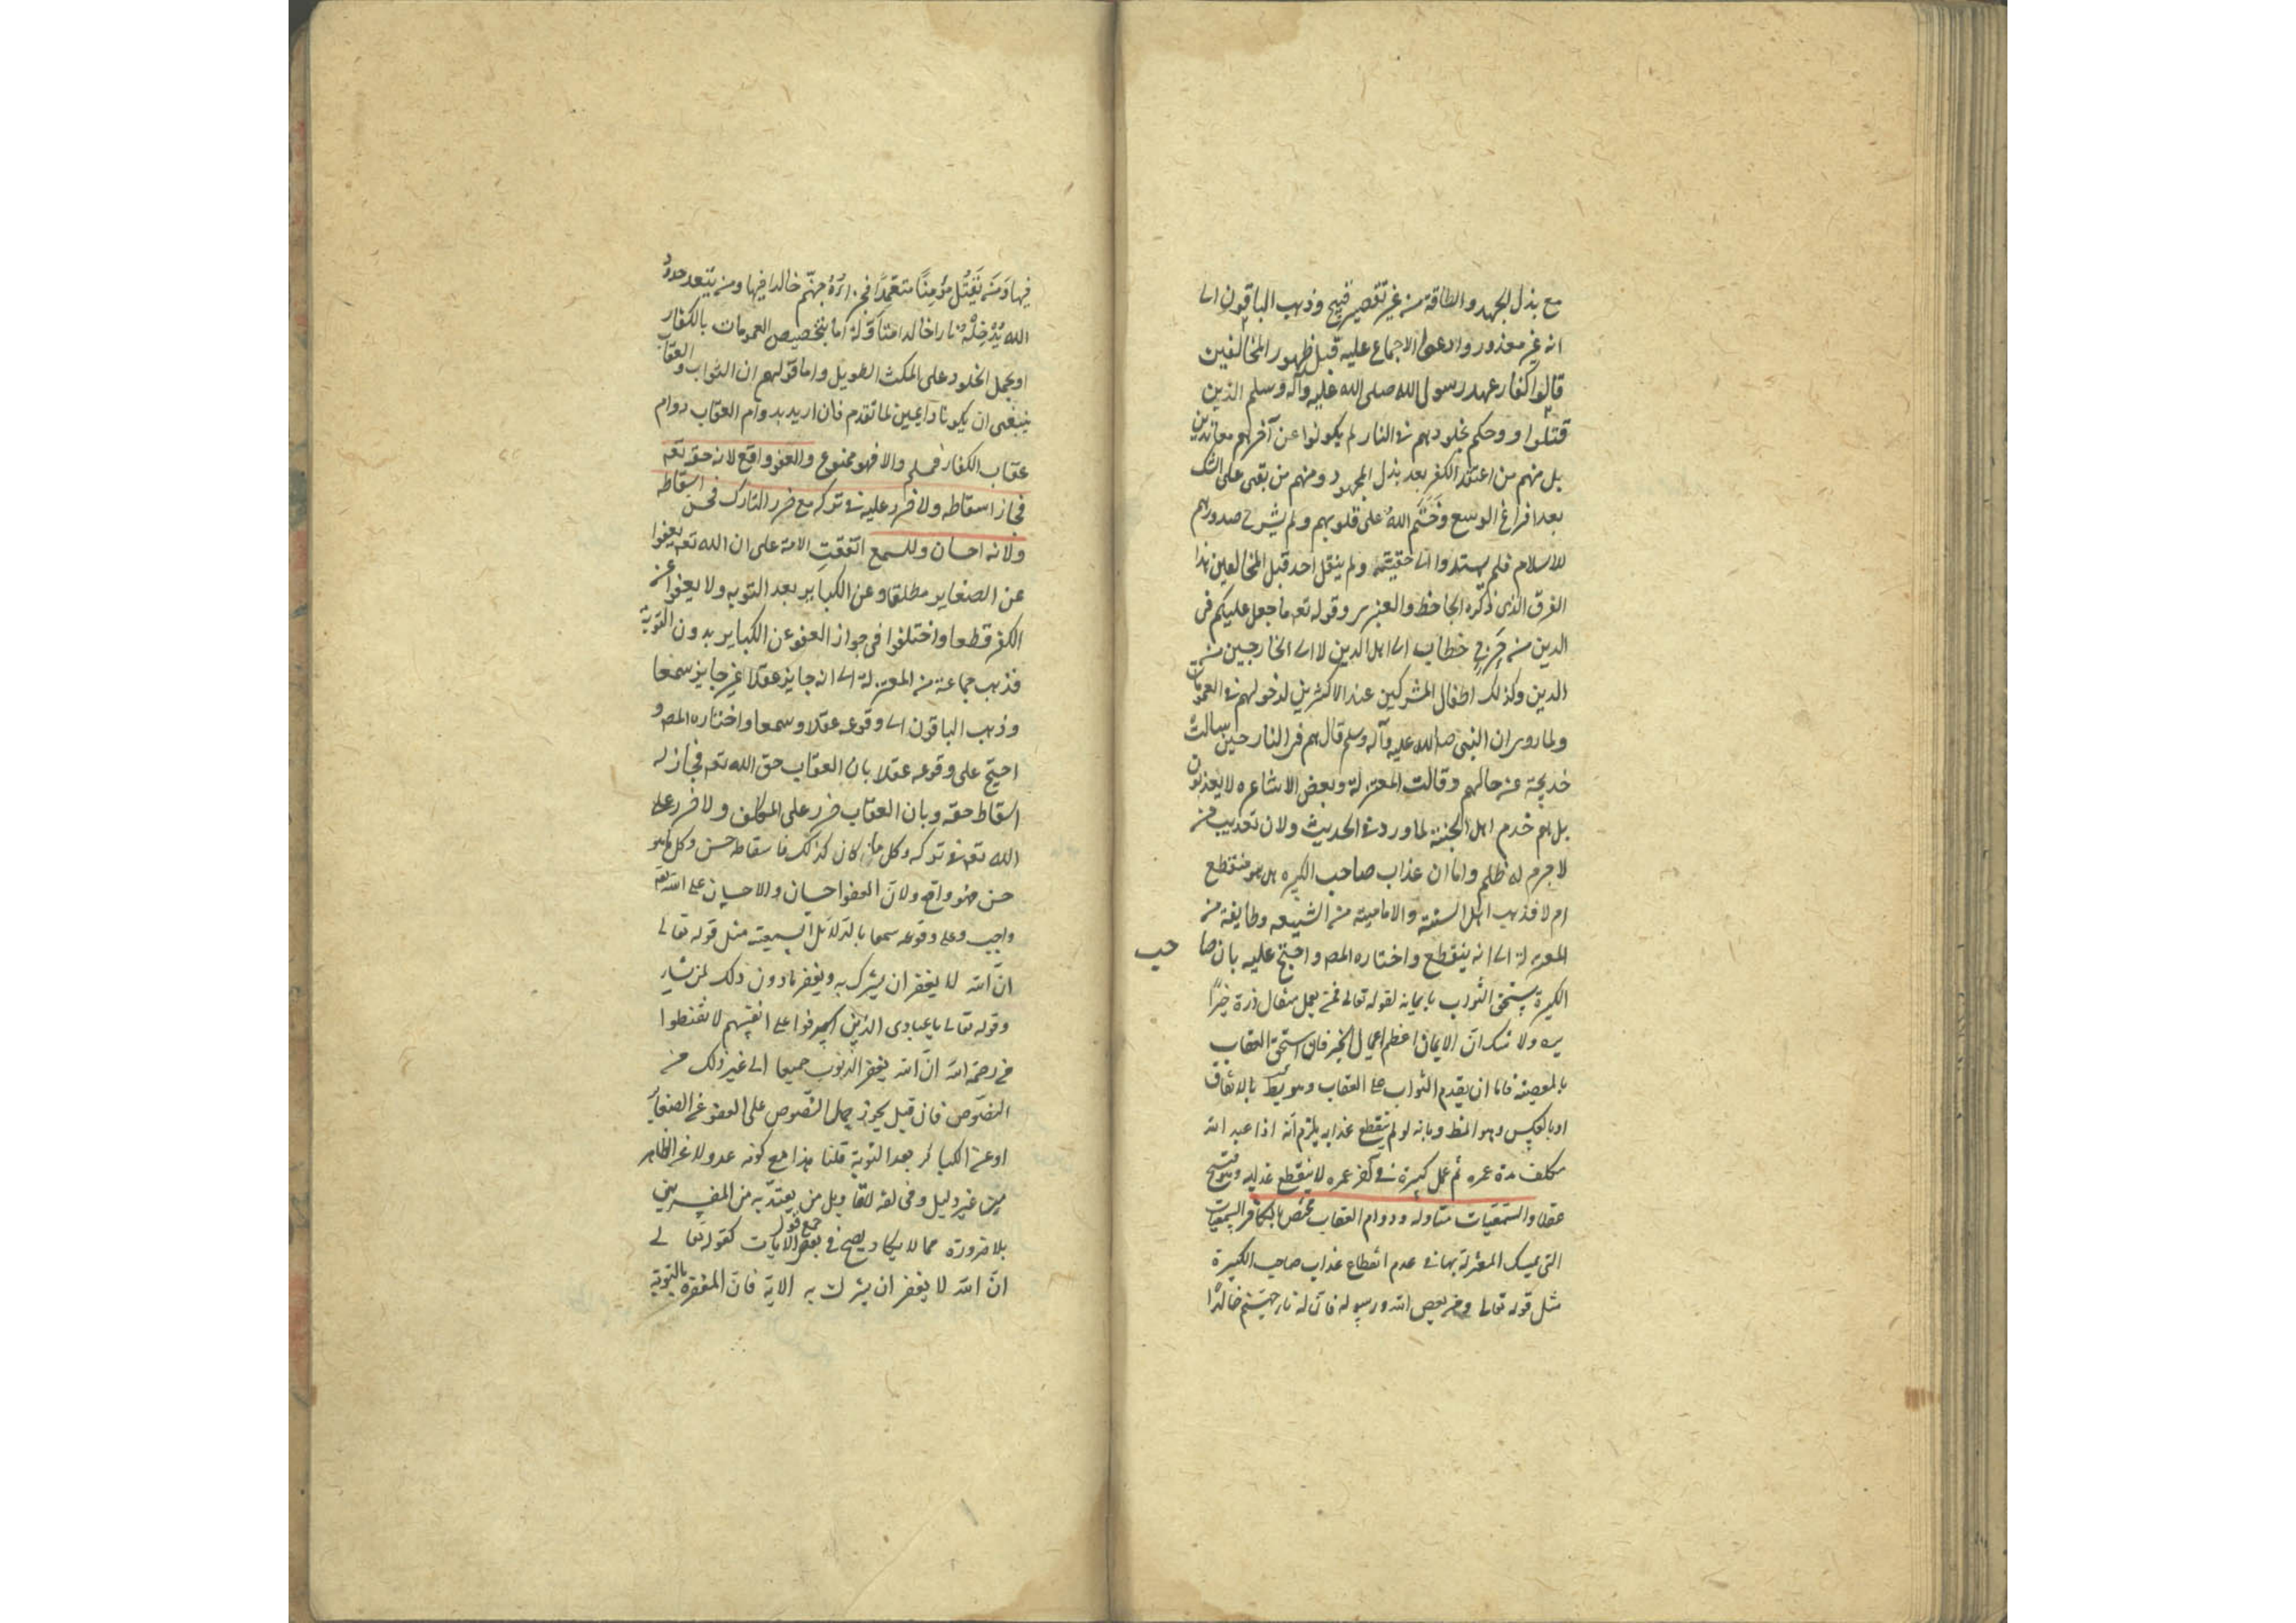 مع بذل الجهد والطاقة من غير تقصير قبيح وذهب الباقون الى
انه غير معذور وادعوا الاجماع عليه قبل ظهور المخالفين
قالوا كفار عهد رسول الله صلى الله عليه وآله وسلم الذين
قتلوا وحكم بخلودهم فى النار لم يكونوا عن آخرهم معاندين
بل منهم من اعتقد الكفر بعد بذل المجهود ومنهم من بقى على الشك
بعد افراغ الوسع وَخَتَم اللهُ على قلوبهم ولم يشرح صدورهم
للاسلام فلم يهتدوا الى حقيقته ولم ينقل احد قبل المخالفين هذا
الفرق الذى ذكره الجاحظ والعنبرى وقوله تعه ما جعل عليكم فى
الدين من حَرَجٍ خطاب الى اهل الدين لا الى الخارجين من
الدين وكذلك اطفال المشركين عند الاكثرين لدخولهم فى العمومات
ولما روى ان النبى صلى الله عليه وآله وسلم قال هم فى النار حين سالت
خديجة عن حالهم وقالت المعتزلة وبعض الاشاعره لا يعذبون
بل هم خدم اهل الجنة لما ورد فى الحديث ولان تعذيب من
لا جرم له ظلم واما ان عذاب صاحب الكبيره هل هو منقطع
ام لا فذهب اهل السنة والامامية من الشيعه وطايفة من
المعتزلة الى انه ينقطع واختاره المص واحتج عليه بان صا حب
الكبيرة يستحق الثواب بايمانه لقوله تعالى فمن يعمل مثقال ذرة خيرًا
يره ولا شك ان الايمان اعظم اعمال الخير فان استحق العقاب
بالمعصية فاما ان يقدم الثواب على العقاب وهو بط بالاتفاق
او بالعكس وهو المط وبانه لو لم ينقطع عذابه يلزم أنه اذا عبد الله
مكلف مدة عمره ثم عمل كبيرة فى آخر عمره لا ينقطع عذابه وهو قبيح
عقلا والسمعيات متاوله ودوام العقاب مختص بالكافر السمعيات
التى يمسك المعتزلة بها فى عدم انقطاع عذاب صاحب الكبيرة
مثل قوله تعالى ومن يعص الله ورسوله فان له نار جهنم خالدًا
فيها وَمَن يَقتُل مؤمِنًا متعمّدًا فجزاؤهُ جهنّم خالدا فيها ومن يتعد حدود
الله يُدْخِلْهُ نارا خالدا متاوّلة اما بتخصيص العمومات بالكفار
او بحمل الخلود على المكث الطويل واما قولهم ان الثواب والعقاب
ينبغى ان يكونا دايمين لما تقدم فان اريد بدوام العقاب دوام
عقاب الكفار فمسلم والا فهو ممنوع والعفو واقع لانه حقه تعه
فجاز اسقاطه ولا ضرر عليه فى تركه مع ضرر التارك فحسن اسقاطه
ولانه احسان وللسمع اتفقتِ الامة على ان الله تعه يعفوا
عن الصغاير مطلقا وعن الكبائر بعد التوبه ولا يعفوا عن
الكفر قطعا واختلفوا فى جواز العفو عن الكباير بدون التوبة
فذهب جماعة من المعتزلة الى انه جايز عقلا غير جايز سمعا
وذهب الباقون الى وقوعه عقلا وسمعا واختاره المص و
احتج على وقوعه عقلا بان العقاب حق الله تعه فجاز له
اسقاط حقه وبان العقاب ضرر على المكلف ولا ضرر على
الله تعه فى تركه وكل ما كان كذلك فاسقاطه حسن وكل ما هو
حسن فهو واقع ولان العفو احسان والاحسان على الله تعه
واجب وعلى وقوعه سمعا بالدلائل السمعية مثل قوله تعالى
انّ الله لا يغفر ان يشرك به ويغفر ما دون ذلك لمن يشاء
وقوله تعالى يا عبادى الذين اسرفوا على انفسهم لا تقنطوا
من رحمة الله انّ الله يغفر الذنوب جميعا الى غير ذلك من
النصوص فان قيل يجوز حمل النصوص على العفو عن الصغائر
او عن الكبائر بعد التوبة قلنا هذا مع كونه عدولا عن الظاهر
من غير دليل ومخالفة لاقاويل من يعتدّ به من المفسرين
بلا ضرورة مما لا يكاد يصح فى بعض الايات كقوله تعالى
انّ الله لا يغفر ان يشرك به الاية فانّ المغفرة بالتوبة